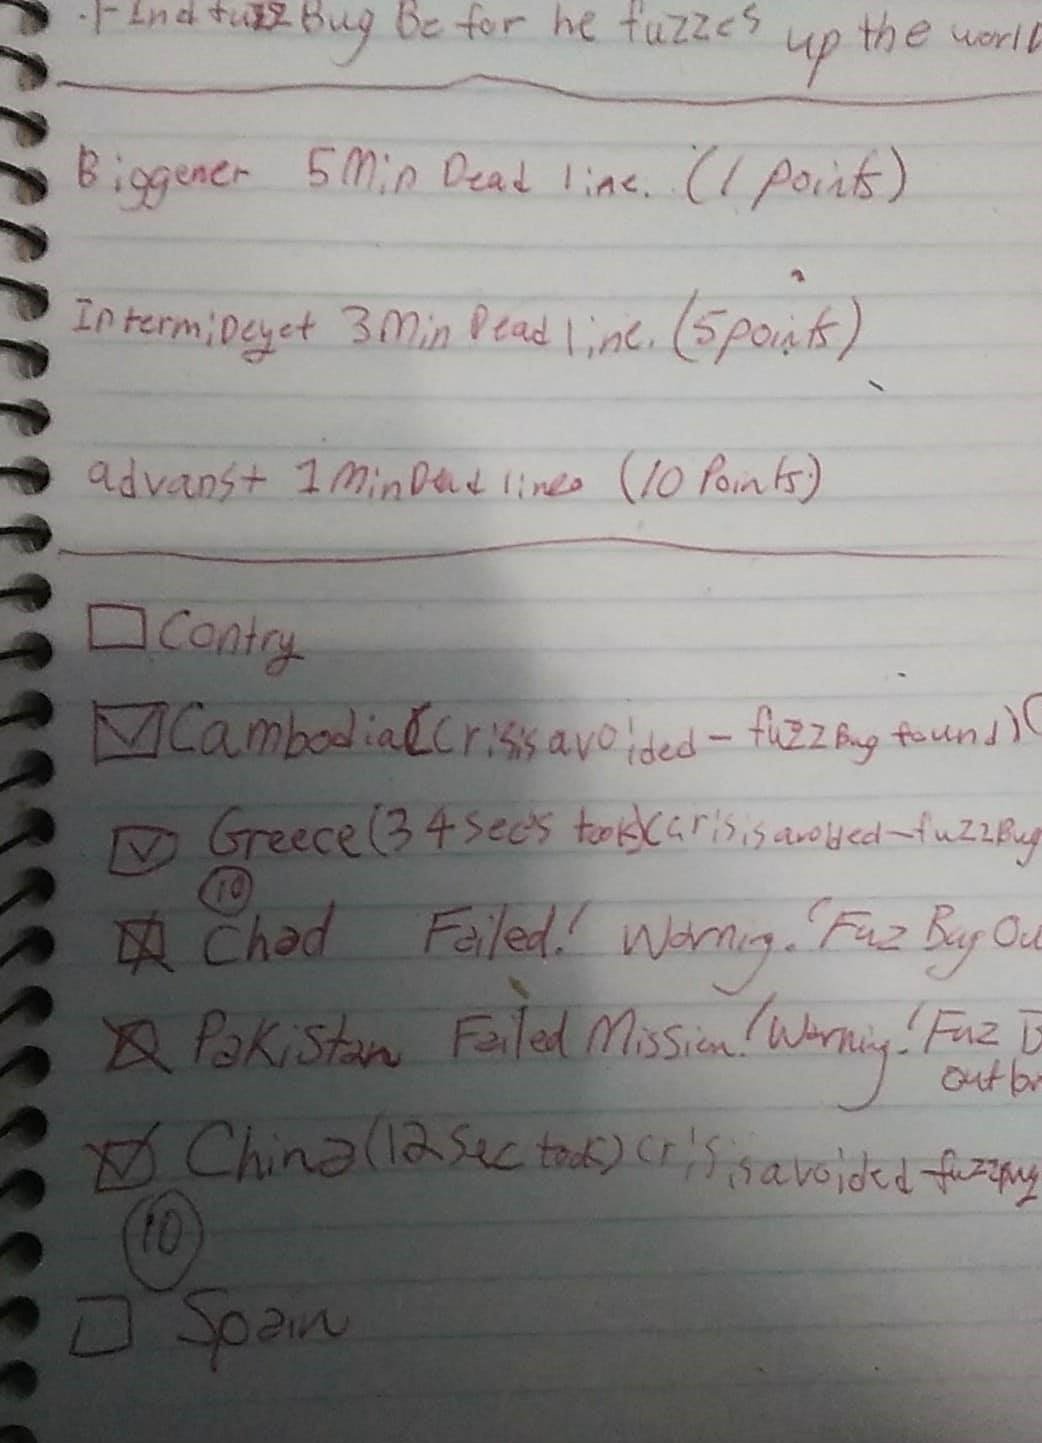 .FInd fuzz Bug Be for he fuzzes up the world
Biggener 5 Min Dead line. (1 points)
Intermideyet 3 Min Dead line. (5 points)
advanst 1 Min Dead lines (10 Points)
Contry
Cambodia (crisis avoided - fuzz Bug found) (
Greece (34 secs took) (crisis avoided - fuzz Bug
10
Chad Failed! Warning! Fuz Bug Ou
Pakistan Failed Mission! Warning! Fuz B
outbr
China (12 Sec took) crisis avoided - fuzz Bug
10
Spain